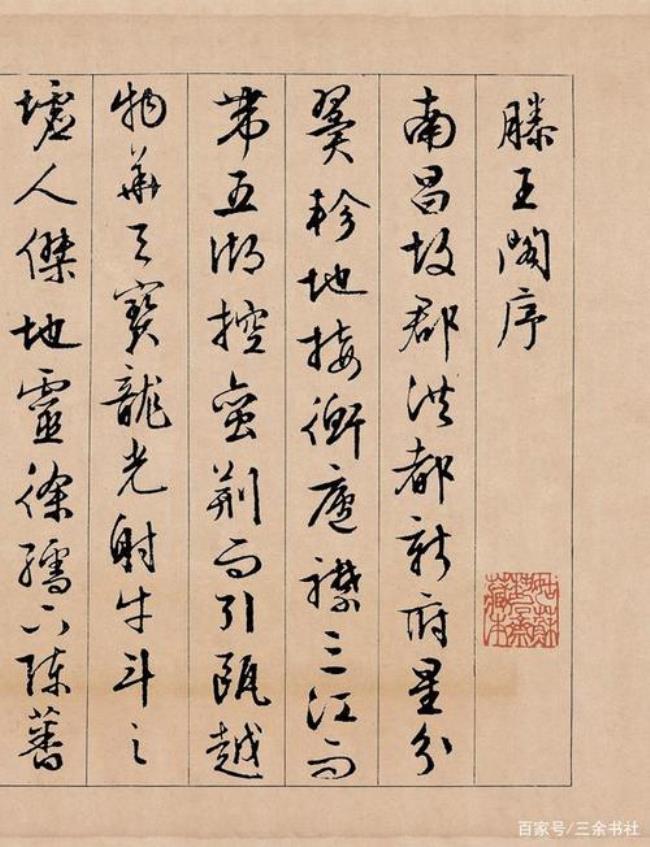 滕王閣序
南昌故郡洪都新府星分
翼軫地接衡廬襟三江而
帶五湖控蠻荊而引甌越
物華天寶龍光射牛斗之
墟人傑地靈徐孺下陳蕃
百家号/三余书社